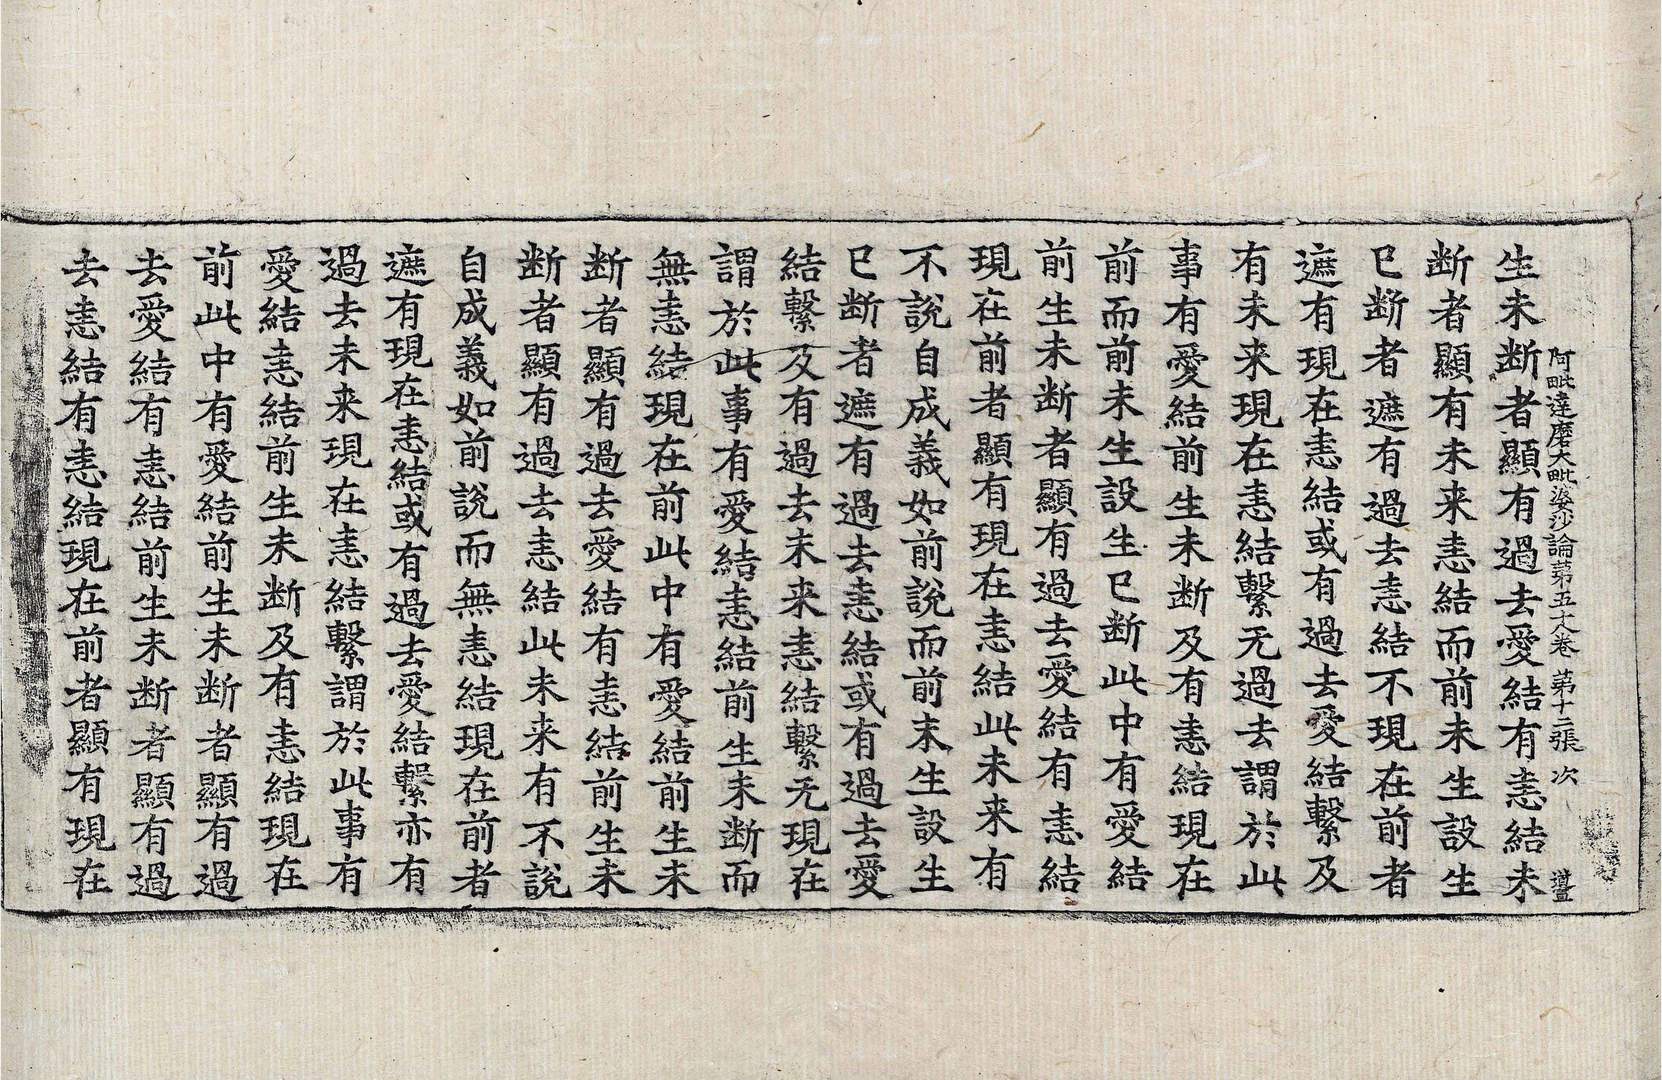 阿毗達磨大毗婆沙論苐五十八卷 第十二張 次
生未断者顯有過去愛結有恚結未
断者顯有未来恚結而前未生設生
已断者遮有過去恚結不現在前者
遮有現在恚結或有過去愛結繫及
有未来現在恚結繫无過去謂於此
事有愛結前生未断及有恚結現在
前而前未生設生已断此中有愛結
前生未断者顯有過去愛結有恚結
現在前者顯有現在恚結此未来有
不說自成義如前說而前未生設生
已断者遮有過去恚結或有過去愛
結繫及有過去未来恚結繫无現在
謂於此事有愛結恚結前生未断而
無恚結現在前此中有愛結前生未
断者顯有過去愛結有恚結前生未
断者顯有過去恚結此未来有不說
自成義如前說而無恚結現在前者
遮有現在恚結或有過去愛結繫亦有
過去未来現在恚結繫謂於此事有
愛結恚結前生未断及有恚結現在
前此中有愛結前生未断者顯有過
去愛結有恚結前生未断者顯有過
去恚結有恚結現在前者顯有現在